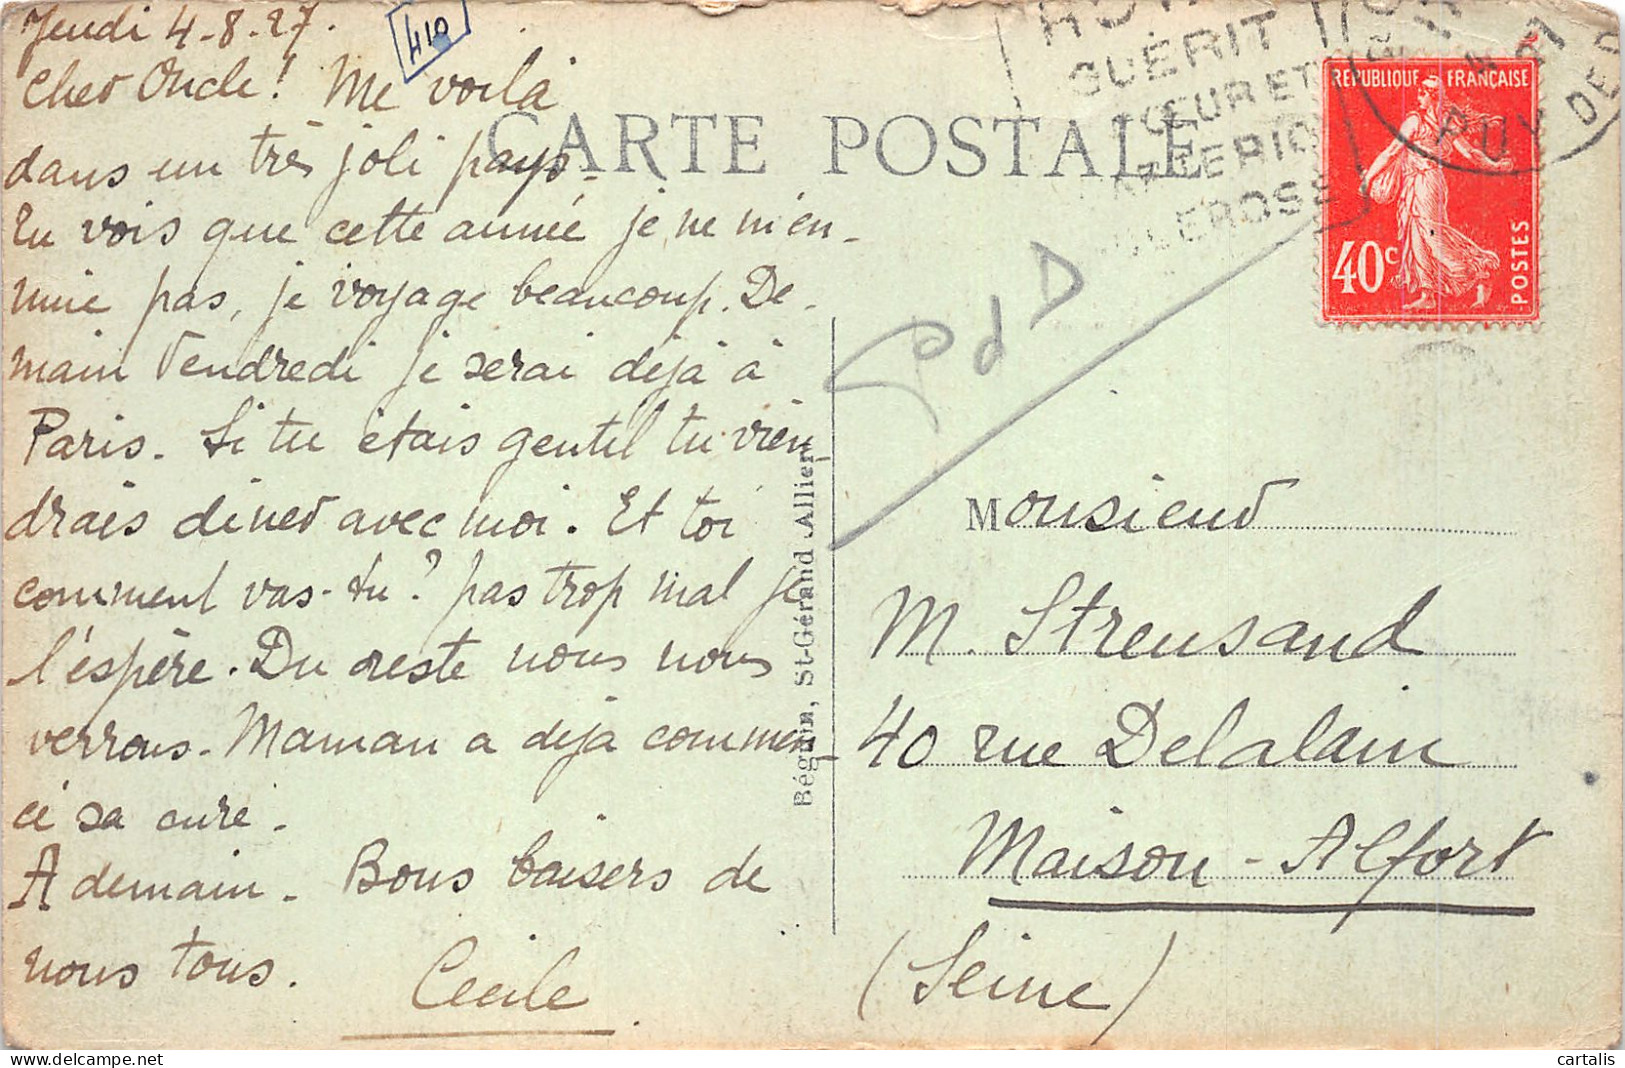 Jeudi 4-8-27.
410
Cher Oncle! Me voilà
dans un très joli pays.
Tu vois que cette année je ne m'en-
nuie pas, je voyage beaucoup. De-
main Vendredi je serai déjà à
Paris. Si tu étais gentil tu vien
drais diner avec moi. Et toi
comment vas-tu? pas trop mal je
l'espère. Du reste nous nous
verrons. Maman a déjà commen
cé sa cure.
A demain. Bons baisers de
nous tous.
Cecile
CARTE POSTALE
Béguin, St-Gérand Allier
GUÉRIT
CŒUR ET
PUY DE D
RÉPUBLIQUE FRANÇAISE
40c
POSTES
PdD
Monsieur
M. Streusand
40 rue Delalain
Maison-Alfort
(Seine)
cartalis